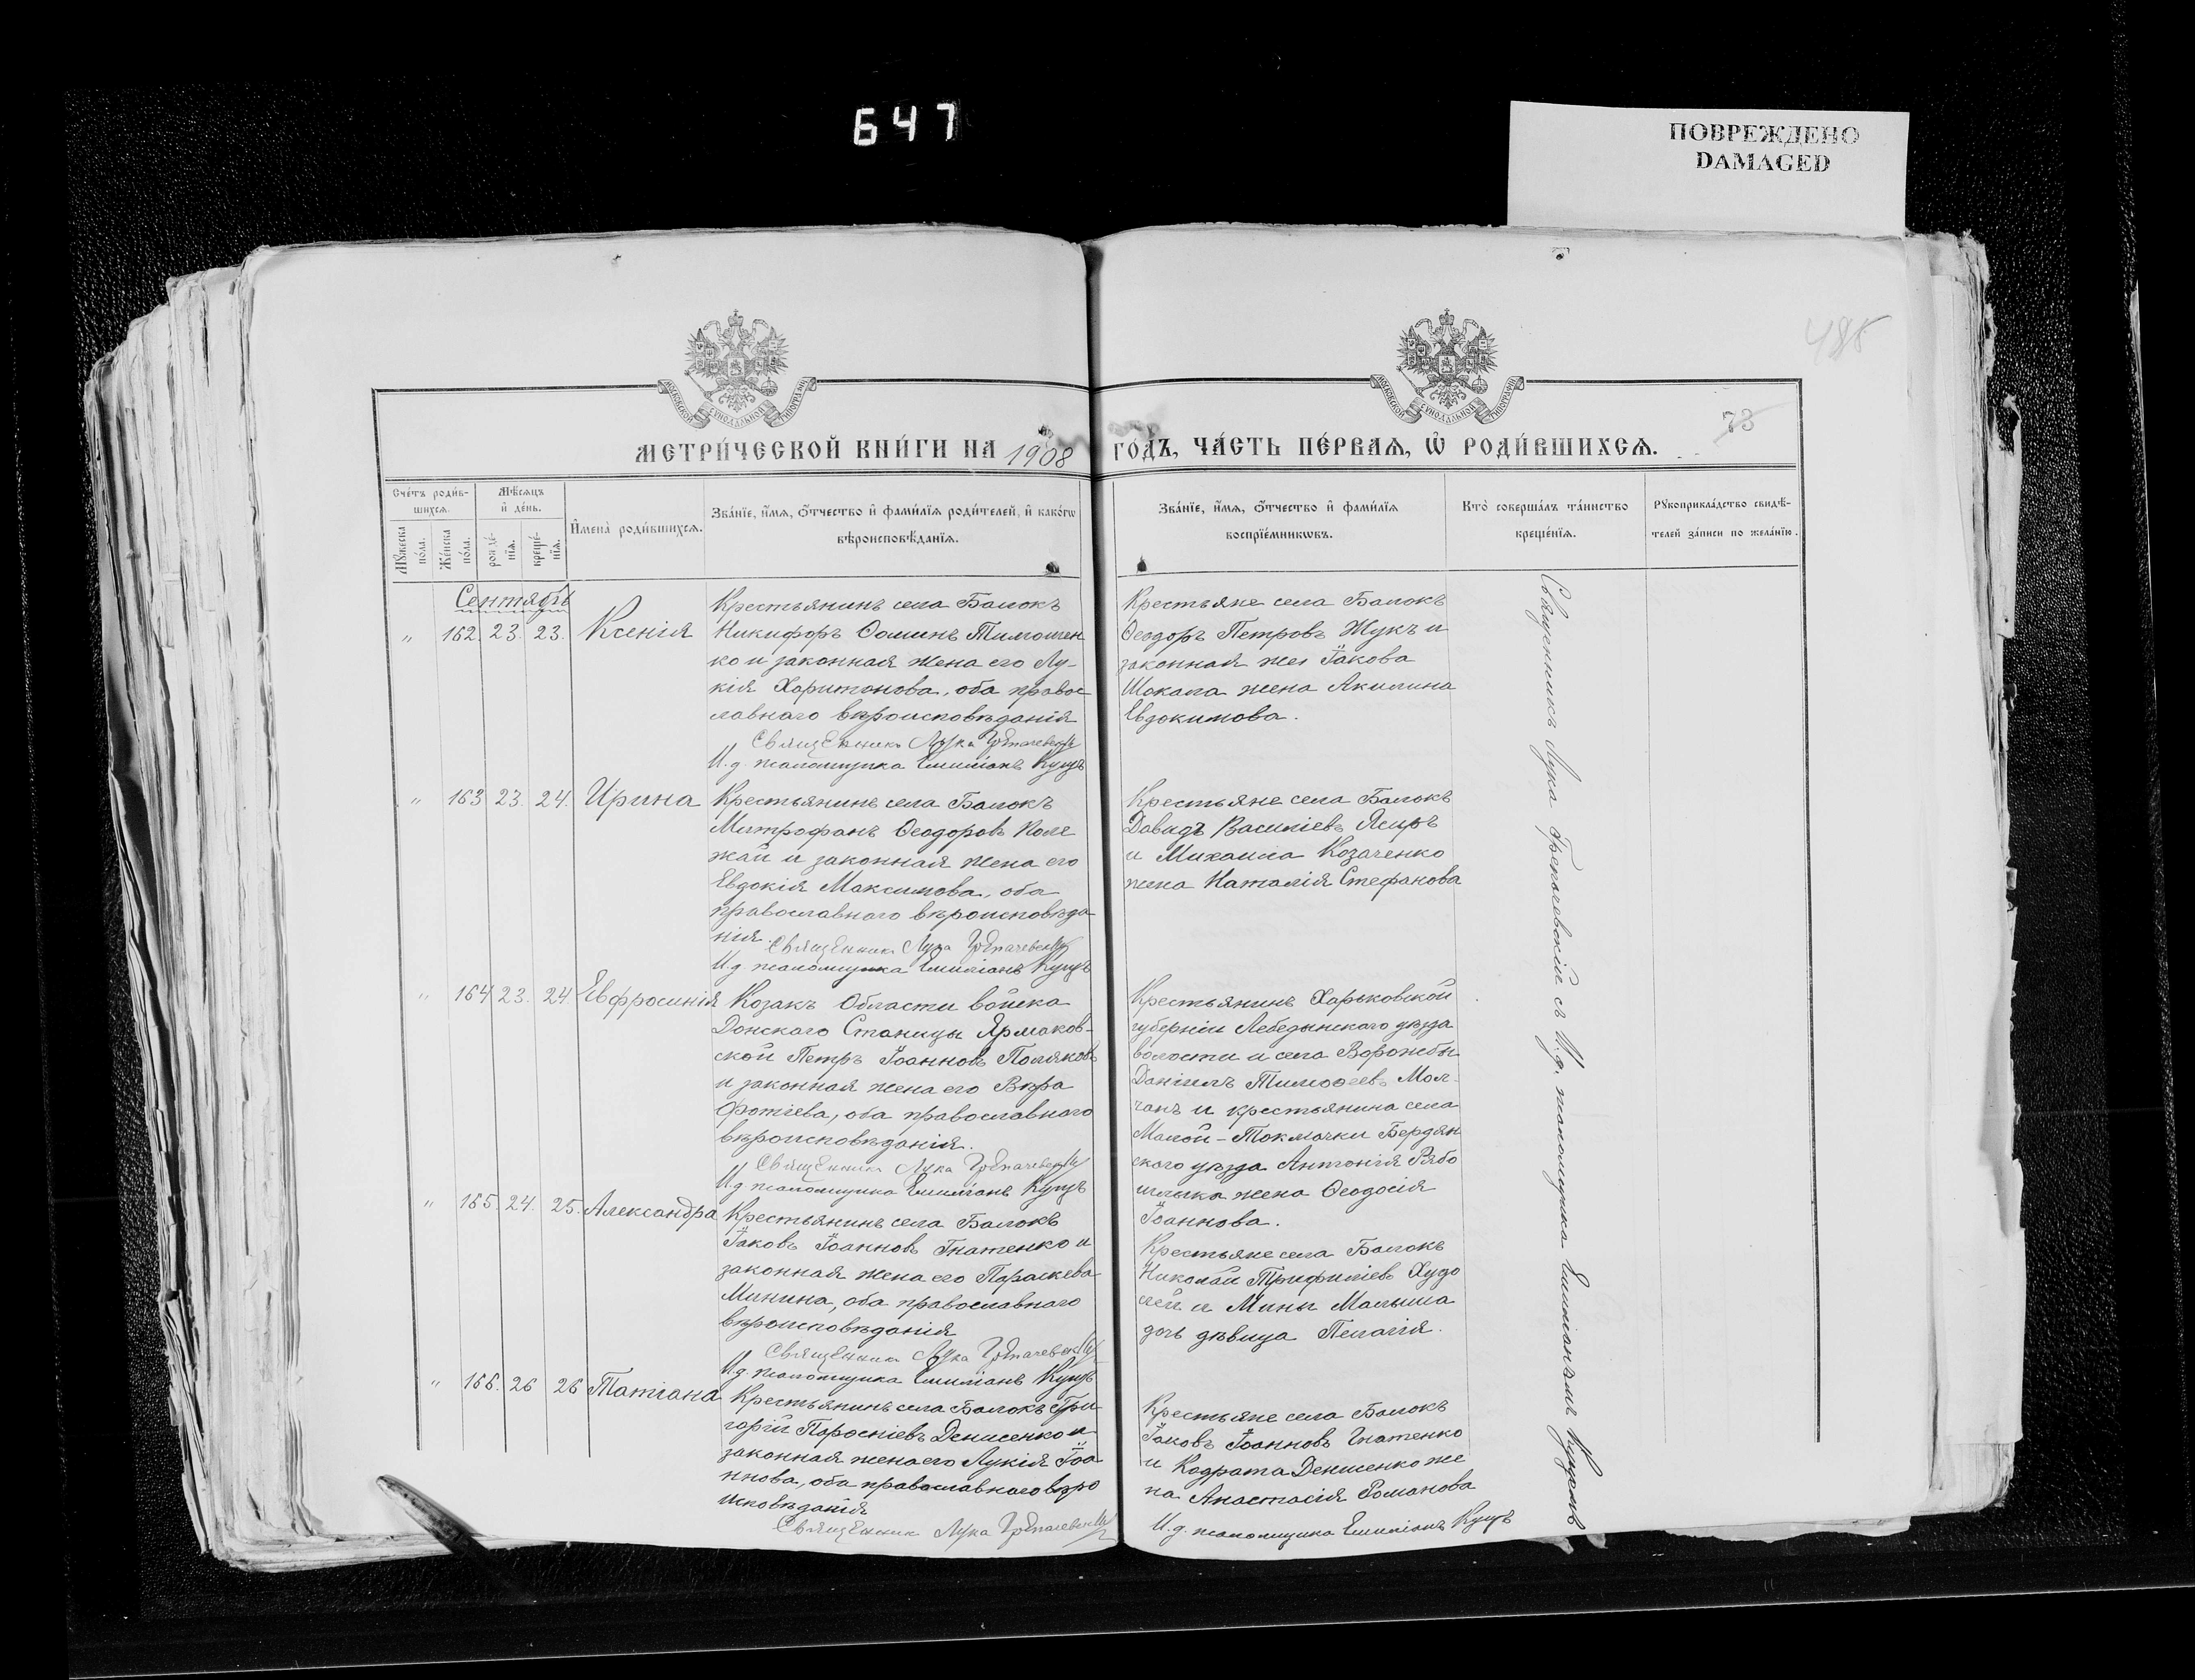 647
ПОВРЕЖДЕНО
DAMAGED
488
73
МОСКОВСКОЙ СУНОДАЛЬНОЙ ТИПОГРАФІИ
МОСКОВСКОЙ СУНОДАЛЬНОЙ ТИПОГРАФІИ
МЕТРИ́ЧЕСКОЙ КНИ́ГИ НА 1908 ГО́ДЪ, ЧА́СТЬ ПЕ́РВАѦ, Ѡ҆ РОДИ́ВШИХСѦ.
Сче́тъ роди́в-
шихсѧ.
Мꙋжеска по́ла.
Же́нска по́ла.
Мѣ́сѧцъ
и҆ де́нь.
рожде́-
нїѧ.
креще́-
нїѧ.
И҆мена̀ роди́вшихсѧ.
Зва́нїе, и҆́мѧ, ѻ҆́тчество и҆ фами́лїѧ роди́телей, и҆ како́гѡ
вѣроисповѣ́данїѧ.
Зва́нїе, и҆́мѧ, ѻ҆́тчество и҆ фами́лїѧ
воспрїе́мникѡвъ.
Кто̀ соверша́лъ та́инство
креще́нїѧ.
Рꙋкоприкла́дство свидѣ́-
телей за́писи по жела́нїю.
Сентябрь
" 162. 23. 23. Ксенія
Крестьянинъ села Балокъ
Никифоръ Ѳоминъ Тимошен
ко и законная жена его Лу-
кія Харитонова, оба правос
лавнаго вѣроисповѣданія
Священникъ Лука Грепачевскій
И.д. псаломщика Емиліанъ Куцъ
Крестьяне села Балокъ
Ѳеодоръ Петровъ Жукъ и
законная же Іакова
Шокала жена Акилина
Евдокимова.
" 163 23. 24. Ирина
Крестьянинъ села Балокъ
Митрофанъ Ѳеодоровъ Поле
жай и законная жена его
Евдокія Максимова, оба
православнаго вѣроисповѣда
нія.
Священникъ Лука Грепачевскій
И.д. псаломщика Емиліанъ Куцъ
Крестьяне села Балокъ
Давидъ Василіевъ Ясиръ
и Михаила Козаченко
жена Наталія Стефанова
" 164 23. 24. Евфросинія
Козакъ Области войска
Донскаго Станицы Ярмаков-
ской Петръ Іоанновъ Поляковъ
и законная жена его Вѣра
Фотіева, оба православнаго
вѣроисповѣданія.
Священникъ Лука Грепачевскій
И.д. псаломщика Емиліанъ Куцъ
Крестьянинъ Харьковской
губерніи Лебедынскаго уѣзда
волости и села Ворожбы
Даніилъ Тимоѳеевъ Мол-
чанъ и крестьянина села
Малой-Токмачки Бердян
скаго уѣзда Антонія Рябо
шлыка жена Ѳеодосія
Іоаннова.
" 165. 24. 25. Александра
Крестьянинъ села Балокъ
Іаковъ Іоанновъ Гнатенко и
законная жена его Параскева
Минина, оба православнаго
вѣроисповѣданія
Священникъ Лука Грепачевскій
И.д. псаломщика Емиліанъ Куцъ
Крестьяне села Балокъ
Николай Трифиліевъ Худо
лей и Мины Малыша
дочь дѣвица Пелагія.
" 166. 26 26 Татіана
Крестьянинъ села Балокъ Гри
горій Парѳеніевъ Денисенко и
законная жена его Лукія Іоа
ннова, оба православнаго вѣро
исповѣданія
Священникъ Лука Грепачевскій
Крестьяне села Балокъ
Іаковъ Іоанновъ Гнатенко
и Кодрата Денисенко же
на Анастасія Романова
И.д. псаломщика Емиліанъ Куцъ
Священникъ Лука Грепачевскій съ И.д. псаломщика Емиліаномъ Куцемъ